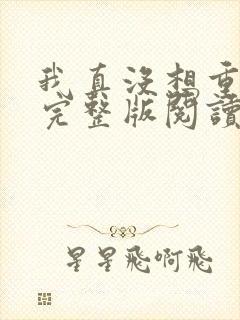 我真沒想重
完整版閱讀
星星飛啊飛